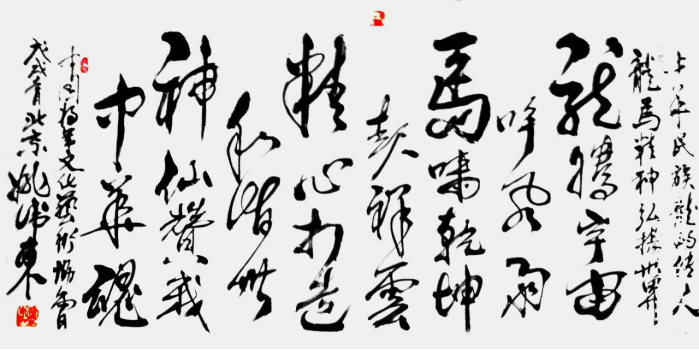 八年民族龍的傳人
龍馬精神弘揚世界
龍騰宇宙
呼風雨
馬嘯乾坤
祥雲
精心打造
和諧世
神仙贊我
中華魂
中國文化藝術協會
戊戌北京姚東